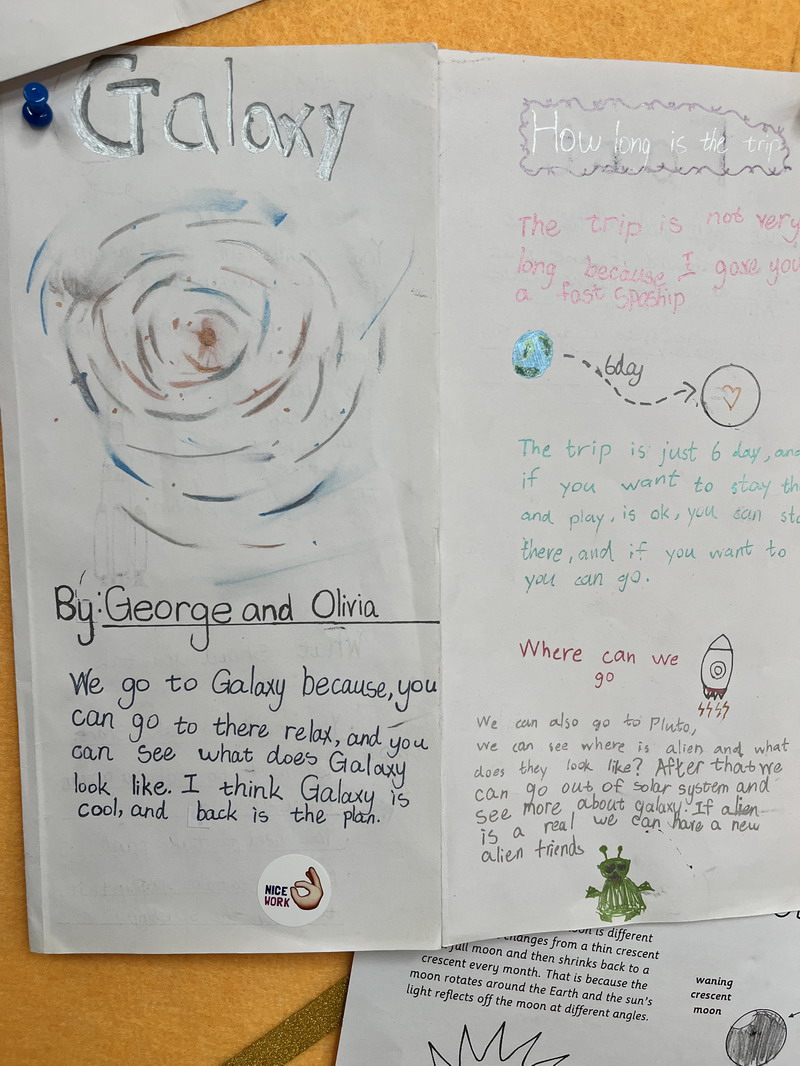 Galaxy
By: George and Olivia
We go to Galaxy because, you
can go to there relax, and you
can see what does Galaxy
look like. I think Galaxy is
cool, and back is the plan.
NICE
WORK
How long is the trip
The trip is not very
long because I gave you
a fast Spaship
6day
The trip is just 6 day, and
if you want to stay th
and play, is ok, you can sta
there, and if you want to
you can go.
Where can we
go
We can also go to Pluto,
we can see where is alien and what
does they look like? After that we
can go out of solar system and
see more about galaxy! If alien
is a real we can have a new
alien friends
is different
changes from a thin crescent
full moon and then shrinks back to a
crescent every month. That is because the
moon rotates around the Earth and the sun's
light reflects off the moon at different angles.
waning
crescent
moon